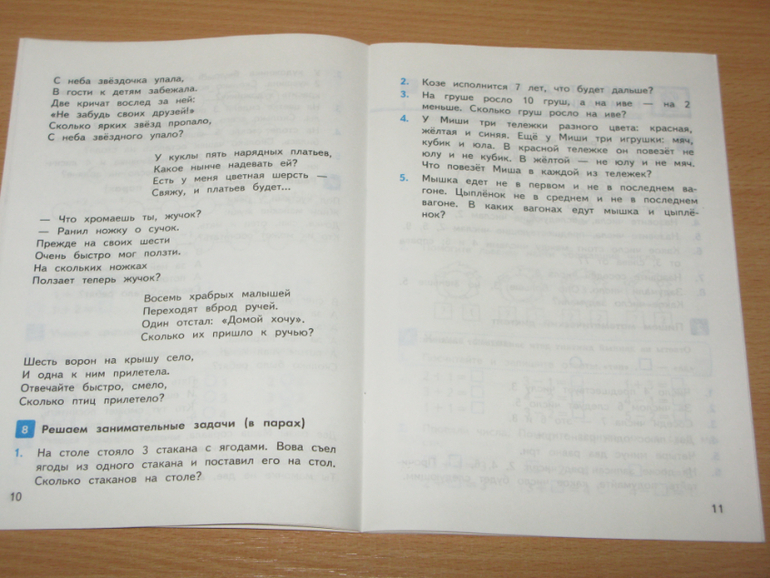 С неба звёздочка упала,
В гости к детям забежала.
Две кричат вослед за ней:
«Не забудь своих друзей!»
Сколько ярких звёзд пропало,
С неба звёздного упало?
У куклы пять нарядных платьев,
Какое нынче надевать ей?
Есть у меня цветная шерсть —
Свяжу, и платьев будет...
— Что хромаешь ты, жучок?
— Ранил ножку о сучок.
Прежде на своих шести
Очень быстро мог ползти.
На скольких ножках
Ползает теперь жучок?
Восемь храбрых малышей
Переходят вброд ручей.
Один отстал: «Домой хочу».
Сколько их пришло к ручью?
Шесть ворон на крышу село,
И одна к ним прилетела.
Отвечайте быстро, смело,
Сколько птиц прилетело?
8 Решаем занимательные задачи (в парах)
1. На столе стояло 3 стакана с ягодами. Вова съел
ягоды из одного стакана и поставил его на стол.
Сколько стаканов на столе?
10
2. Козе исполнится 7 лет, что будет дальше?
3. На груше росло 10 груш, а на иве — на 2
меньше. Сколько груш росло на иве?
4. У Миши три тележки разного цвета: красная,
жёлтая и синяя. Ещё у Миши три игрушки: мяч,
кубик и юла. В красной тележке он повезёт не
юлу и не кубик. В жёлтой — не юлу и не мяч.
Что повезёт Миша в каждой из тележек?
5. Мышка едет не в первом и не в последнем ва-
гоне. Цыплёнок не в среднем и не в последнем
вагоне. В каких вагонах едут мышка и цыплё-
нок?
11